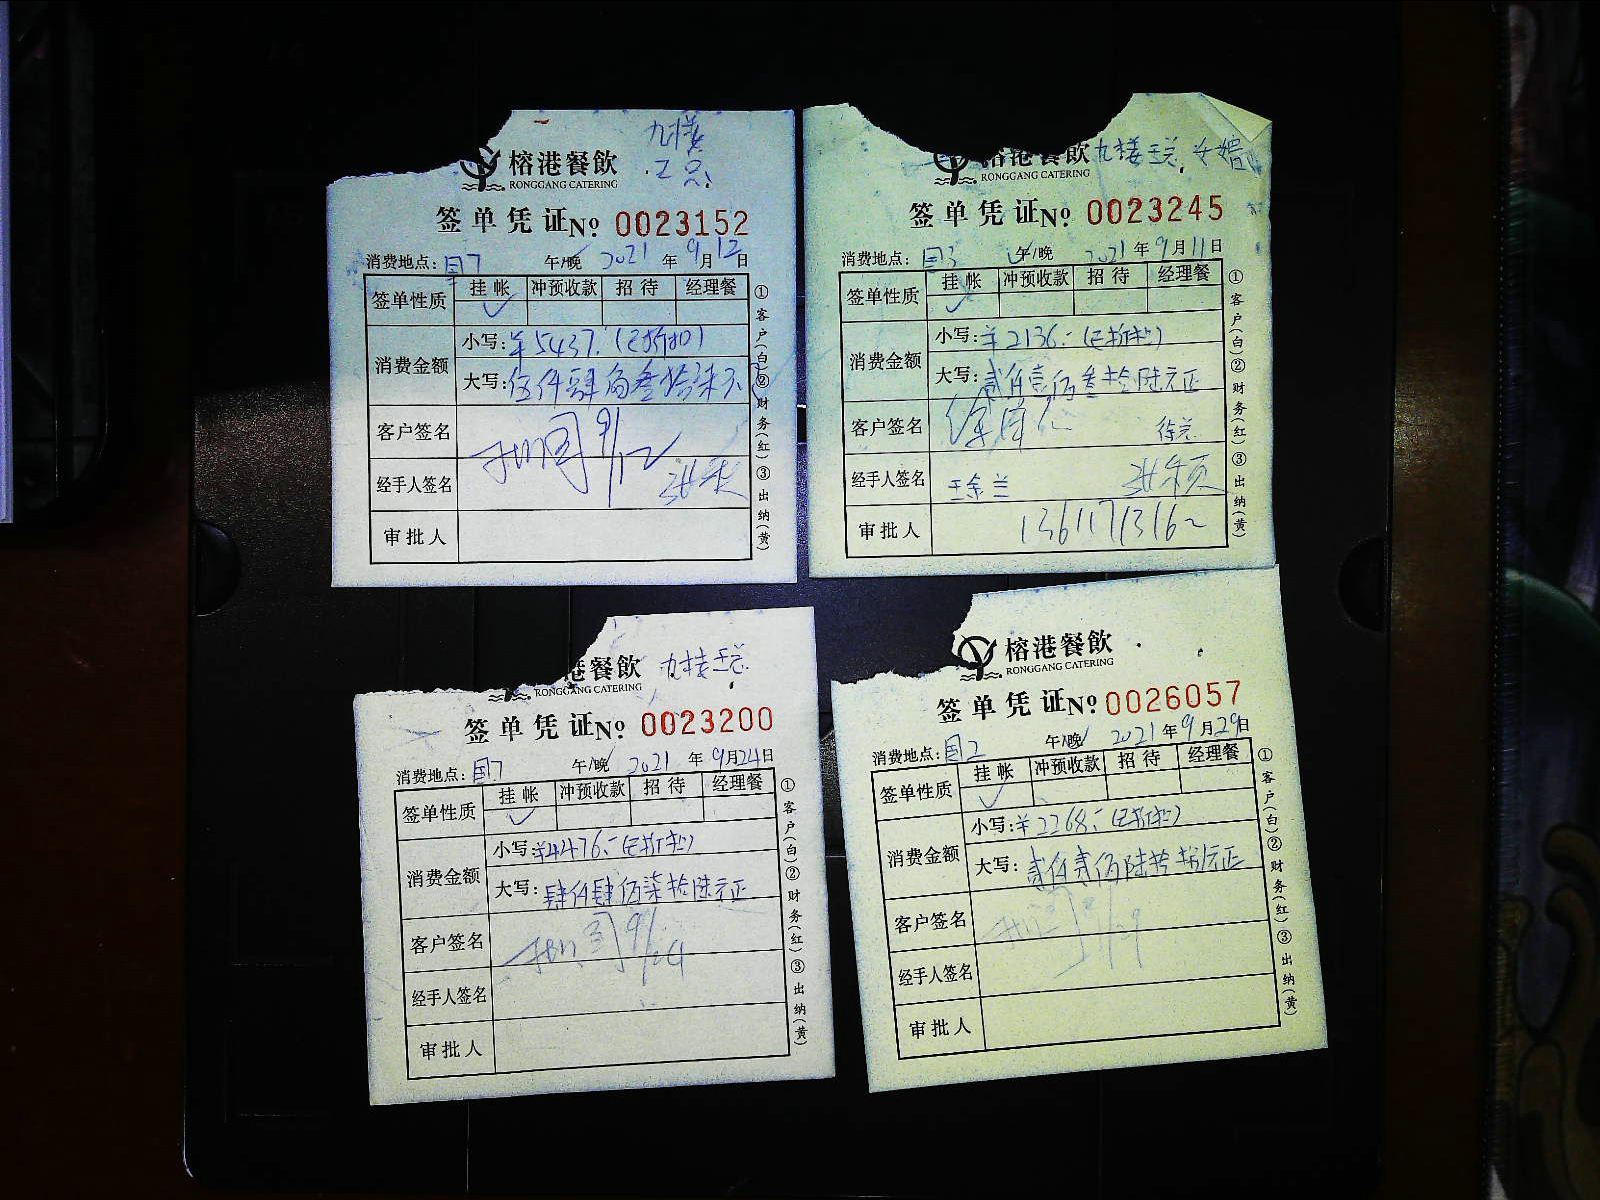 九楼
王总.
榕港餐飲
RONGGANG CATERING
签单凭证No 0023152
消费地点: 国7 午/晚 2021 年 9月12日
签单性质 挂帐 冲预收款 招待 经理餐
✓
消费金额 小写: ¥5437.(已折扣)
大写: 伍仟肆佰叁拾柒元
客户签名 9/12
经手人签名
审批人
①客户(白)②财务(红)③出纳(黄)
榕港餐飲 九楼王总.女婿
RONGGANG CATERING
签单凭证No 0023245
消费地点: 国3 午/晚 2021 年 9月11日
签单性质 挂帐 冲预收款 招待 经理餐
✓
消费金额 小写: ¥2136.-(已折扣)
大写: 贰仟壹佰叁拾陆元正
客户签名
经手人签名
审批人
①客户(白)②财务(红)③出纳(黄)
港餐飲 九楼王总.
RONGGANG CATERING
签单凭证No 0023200
消费地点: 国7 午/晚 2021 年 9月24日
签单性质 挂帐 冲预收款 招待 经理餐
✓
消费金额 小写: ¥4476.-(已折扣)
大写: 肆仟肆佰柒拾陆元正
客户签名 9/24
经手人签名
审批人
①客户(白)②财务(红)③出纳(黄)
榕港餐飲
RONGGANG CATERING
签单凭证No 0026057
消费地点: 国2 午/晚 2021 年 9月29日
签单性质 挂帐 冲预收款 招待 经理餐
✓
消费金额 小写: ¥2268.-(已折扣)
大写: 贰仟贰佰陆拾捌元正
客户签名
经手人签名
审批人
①客户(白)②财务(红)③出纳(黄)